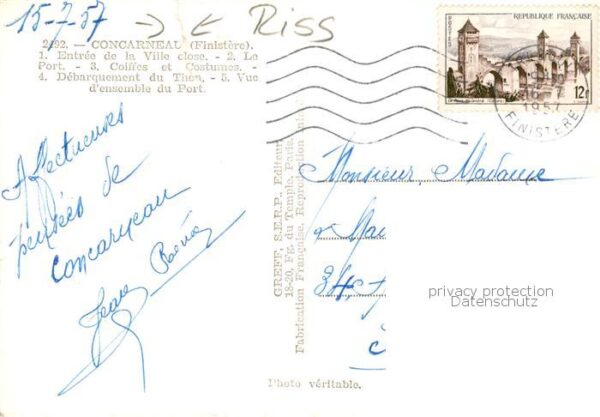 15-7-57
→ ← Riss
2492. - CONCARNEAU (Finistère).
1. Entrée de la Ville close. - 2. Le
Port. - 3. Coiffes et Costumes. -
4. Débarquement du Thon. - 5. Vue
d'ensemble du Port.
Affectueuses
pensées de
Concarneau
Jean
GREFF, S.E.R.P., Editeur
18-20, Fg. du Temple, Paris.
Fabrication Française. Reproduction
Photo véritable.
POSTES
REPUBLIQUE FRANÇAISE
12f
1957
FINISTERE
Monsieur Madame
privacy protection
Datenschutz